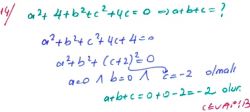 14) a²+4+b²+c²+4c=0 ⇒ a+b+c=?
a²+b²+c²+4c+4=0
a²+b²+(c+2)²=0
a=0 ∧ b=0 ∧ c=-2 olmalı
a+b+c=0+0-2=-2 olur.